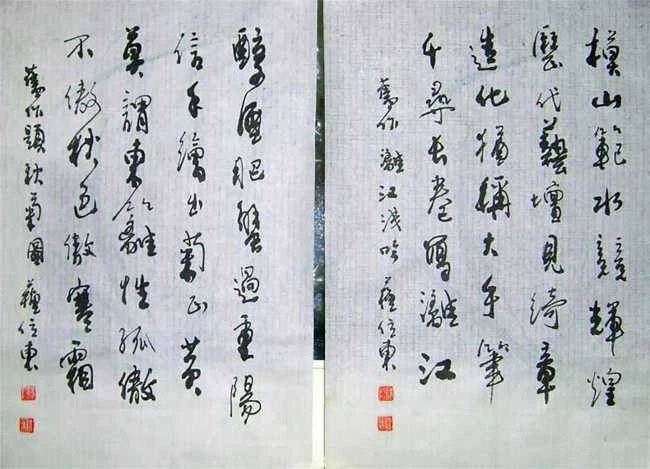 模山範水競輝煌
歷代藝壇見綺章
造化猶稱大手筆
千尋長卷寫灕江
舊作灕江淺吟 蘇位東
醇酒肥蟹過重陽
信手繪出菊正黃
莫謂東籬性孤傲
不傲秋色傲寒霜
舊作題秋菊圖 蘇位東